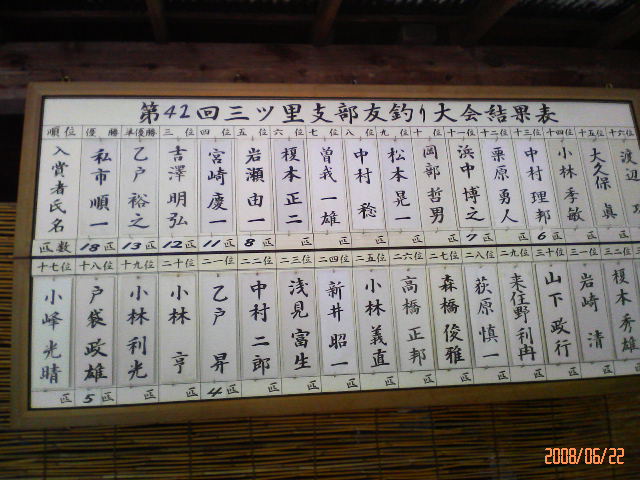 第42回三ツ里支部友釣り大会結果表
順位 優勝 準優勝 三位 四位 五位 六位 七位 八位 九位 十位 十一位 十二位 十三位 十四位 十五位 十六位
入賞者氏名 私市順一 乙戸裕之 吉澤明弘 宮崎慶一 岩瀬由一 榎本正二 曽我一雄 中村稔 松本晃一 岡部哲男 浜中博之 栗原勇人 中村理邦 小林季敏 大久保眞 渡辺
匹数 18匹 13匹 12匹 11匹 8匹 匹 匹 匹 匹 匹 7匹 匹 6匹 匹 匹
十七位 十八位 十九位 二十位 二一位 二二位 二三位 二四位 二五位 二六位 二七位 二八位 二九位 三十位 三一位 三二
小峰光晴 戸袋政雄 小林利光 小林亨 乙戸昇 中村二郎 浅見富生 新井昭一 小林義直 高橋正邦 森橋俊雅 荻原慎一 来住野利冉 山下政行 岩崎清 榎本秀雄
匹 5匹 匹 匹 4匹 匹 匹 匹 匹 匹 匹 匹 匹 匹 匹
2008/06/22